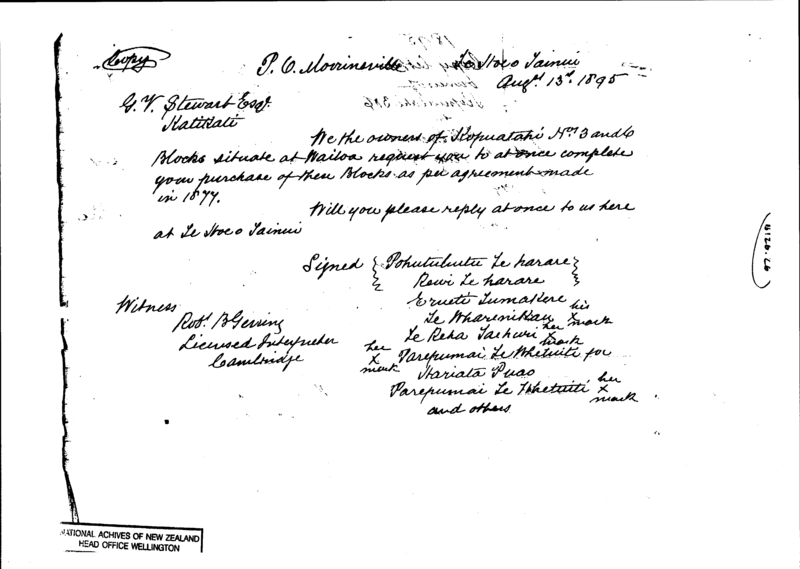 Copy
P. O. Morrinsville Te Hoco Tainui
Augst 13th. 1895
G. V. Stewart Esqr.
Katikati
We the owners of Kopuatahi Nos 3 and 6
Blocks situate at Waitoa request you to at once complete
your purchase of these Blocks as per agreement made
in 1877.
Will you please reply at once to us here
at Te Hoco Tainui
Signed Pohutuhutu Te harare
Rewi Te harare
Erueti Tumakere
Te Wharenikau his x mark
Te Reha Taehuri her x mark
her x mark Parepumai Te Whetuiti for
Hariata Puao
Parepumai Te Whetuiti her x mark
and others
Witness
Robt.
Licensed Interpreter
Cambridge
NATIONAL ACHIVES OF NEW ZEALAND
HEAD OFFICE WELLINGTON